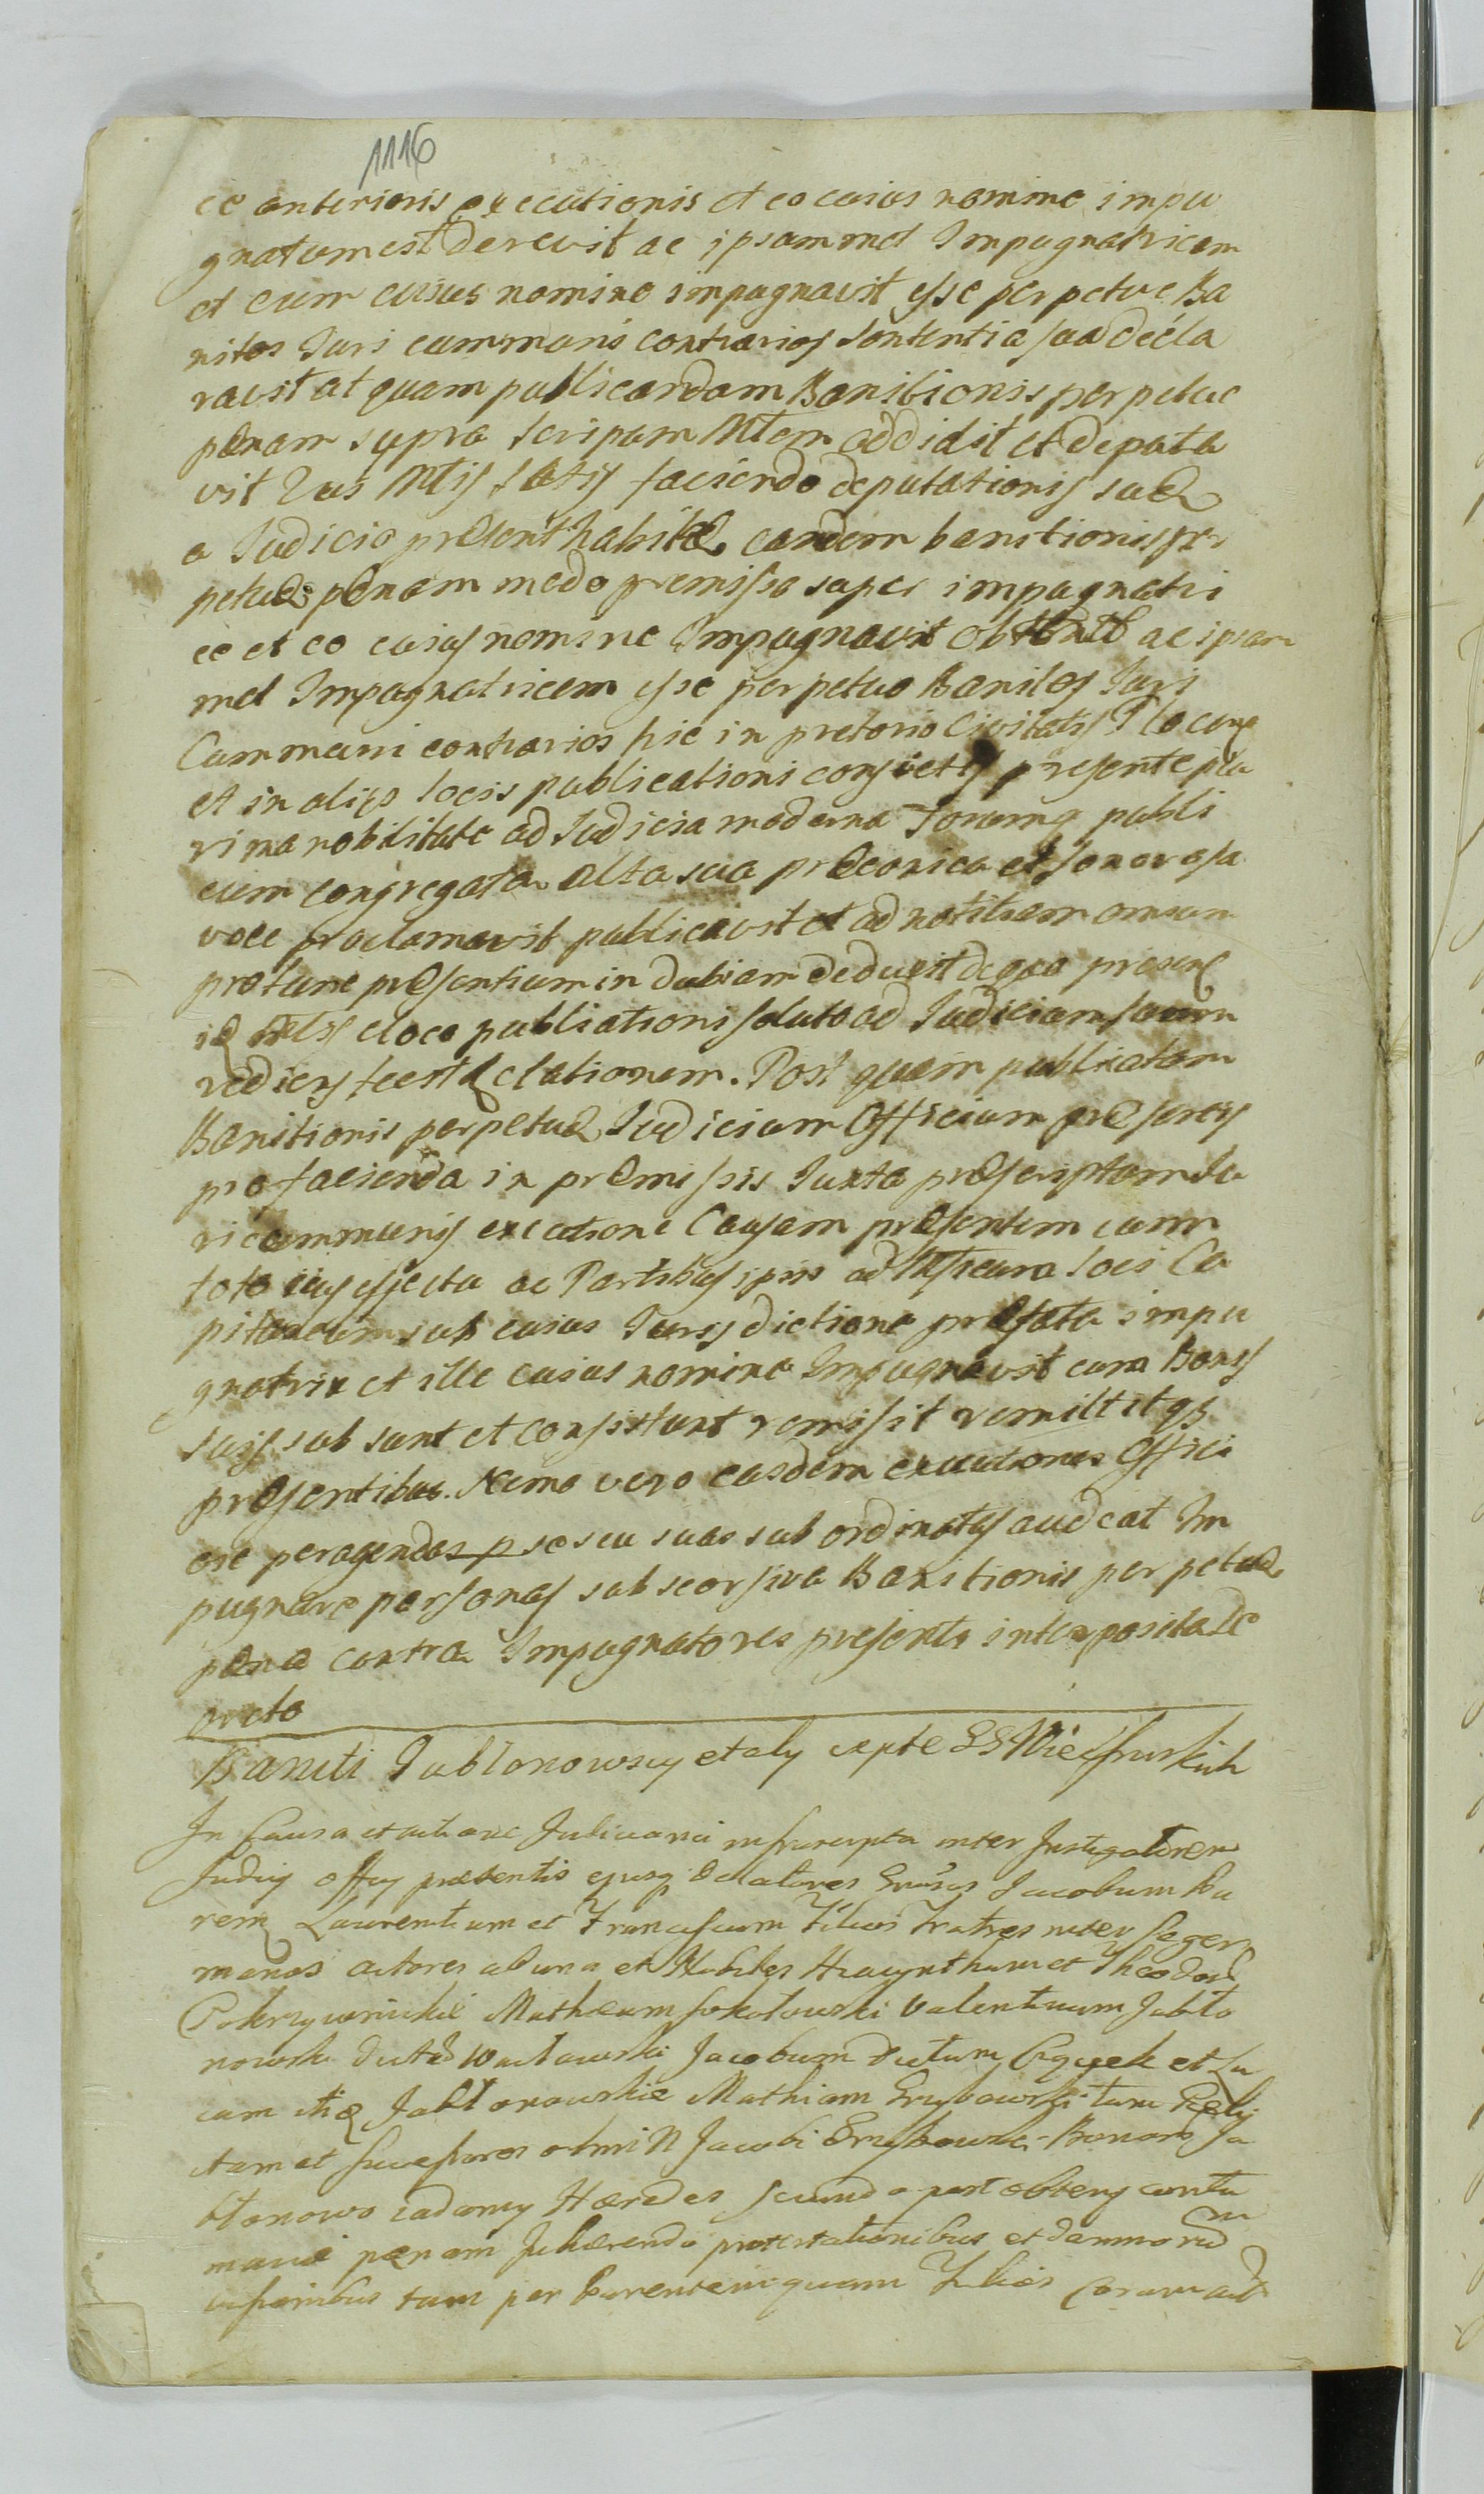 1116
ce anterioris executionis et eo cuius nomine impu
gnatum est decrevit ac ipsammet Impugnatricem
et eum cuius nomine impugnavit esse perpetue Ba
nitos Juri communi contrarios Sententia sua decla
ravit at quam publicandam Banitionis perpetue
penam supra scripam Mtem addidit et deputa
vit Qus Mtis satis faciendo deputationis suæ
a Judicio present habitæ eandem banitionis per
petuæ pænam modo premisso super impugnatri
ce et eo cuius nomine Impugnavit obtent ac ipsam
met Impugnatricem esse perpetuo Banitos Juri
Communi contrarios hic in pretorio Civitatis Plocens
et in aliis locis publicationi consuetis presente plu
rima nobilitate ad Judicia moderna Forumq publi
cum congregata alta sua præconica et sonorosa
voce proclamavit publicavit et ad notitiam omnium
protunc præsentium in dubiam deduxit de qua presens
id Mtis eloco publiationi soluto ad Judicium suum
rediens fecit Relationem. Post quam publicatam
Banitionis perpetuæ Judicium Officium præsens
pro facienda in præmissis Juxta præscriptum Ju
ri communis executione Causam præsentem cum
toto eius effectu ac Partibus ipsis ad loci Ca
pitaneum sub cuius Jurisdictione præfata impu
gnatrix et ille cuius nomine Impugnavit cum Bonis
suis sub sunt et consistunt remisit remittitqz
præsentibus. Nemo vero easdem executiones Offici
ose peragendas p se seu suas sub ordinatas audeat Im
pugnare personas sub seorsiva Banitionis perpetuæ
pæna contra Impugnatores presenti interposita De
creto
Baniti Jablonowscy et aly expte GG Wiechurskich
In Causa et actione Judicaria infrascripta inter Instigatorem
Judicy officy præsentis ejusq Delatores Grosos Jacobum Pa
rem Laurentium et Franciscum Filios Fratres inter se ger
manos actores ab una et Nobiles Hiacynthum et Theodor
Pokrzywnickie Mathæum Sokołowski Valentinum Jabło
nowski dictus Wacławski Jacobum dictum Czyżek et Lu
cam itiq Jabłonowskie Mathiam Grzybowski tum Relij
tam et Successores olim N Jacobi Grzybowski Bonoro Ja
błonowo zadamy Hæredes secunda post obteng contu
maciæ pænam Inhærendo protestationibus et damnorum
visionibus tam per Parentem quam Filios coram act